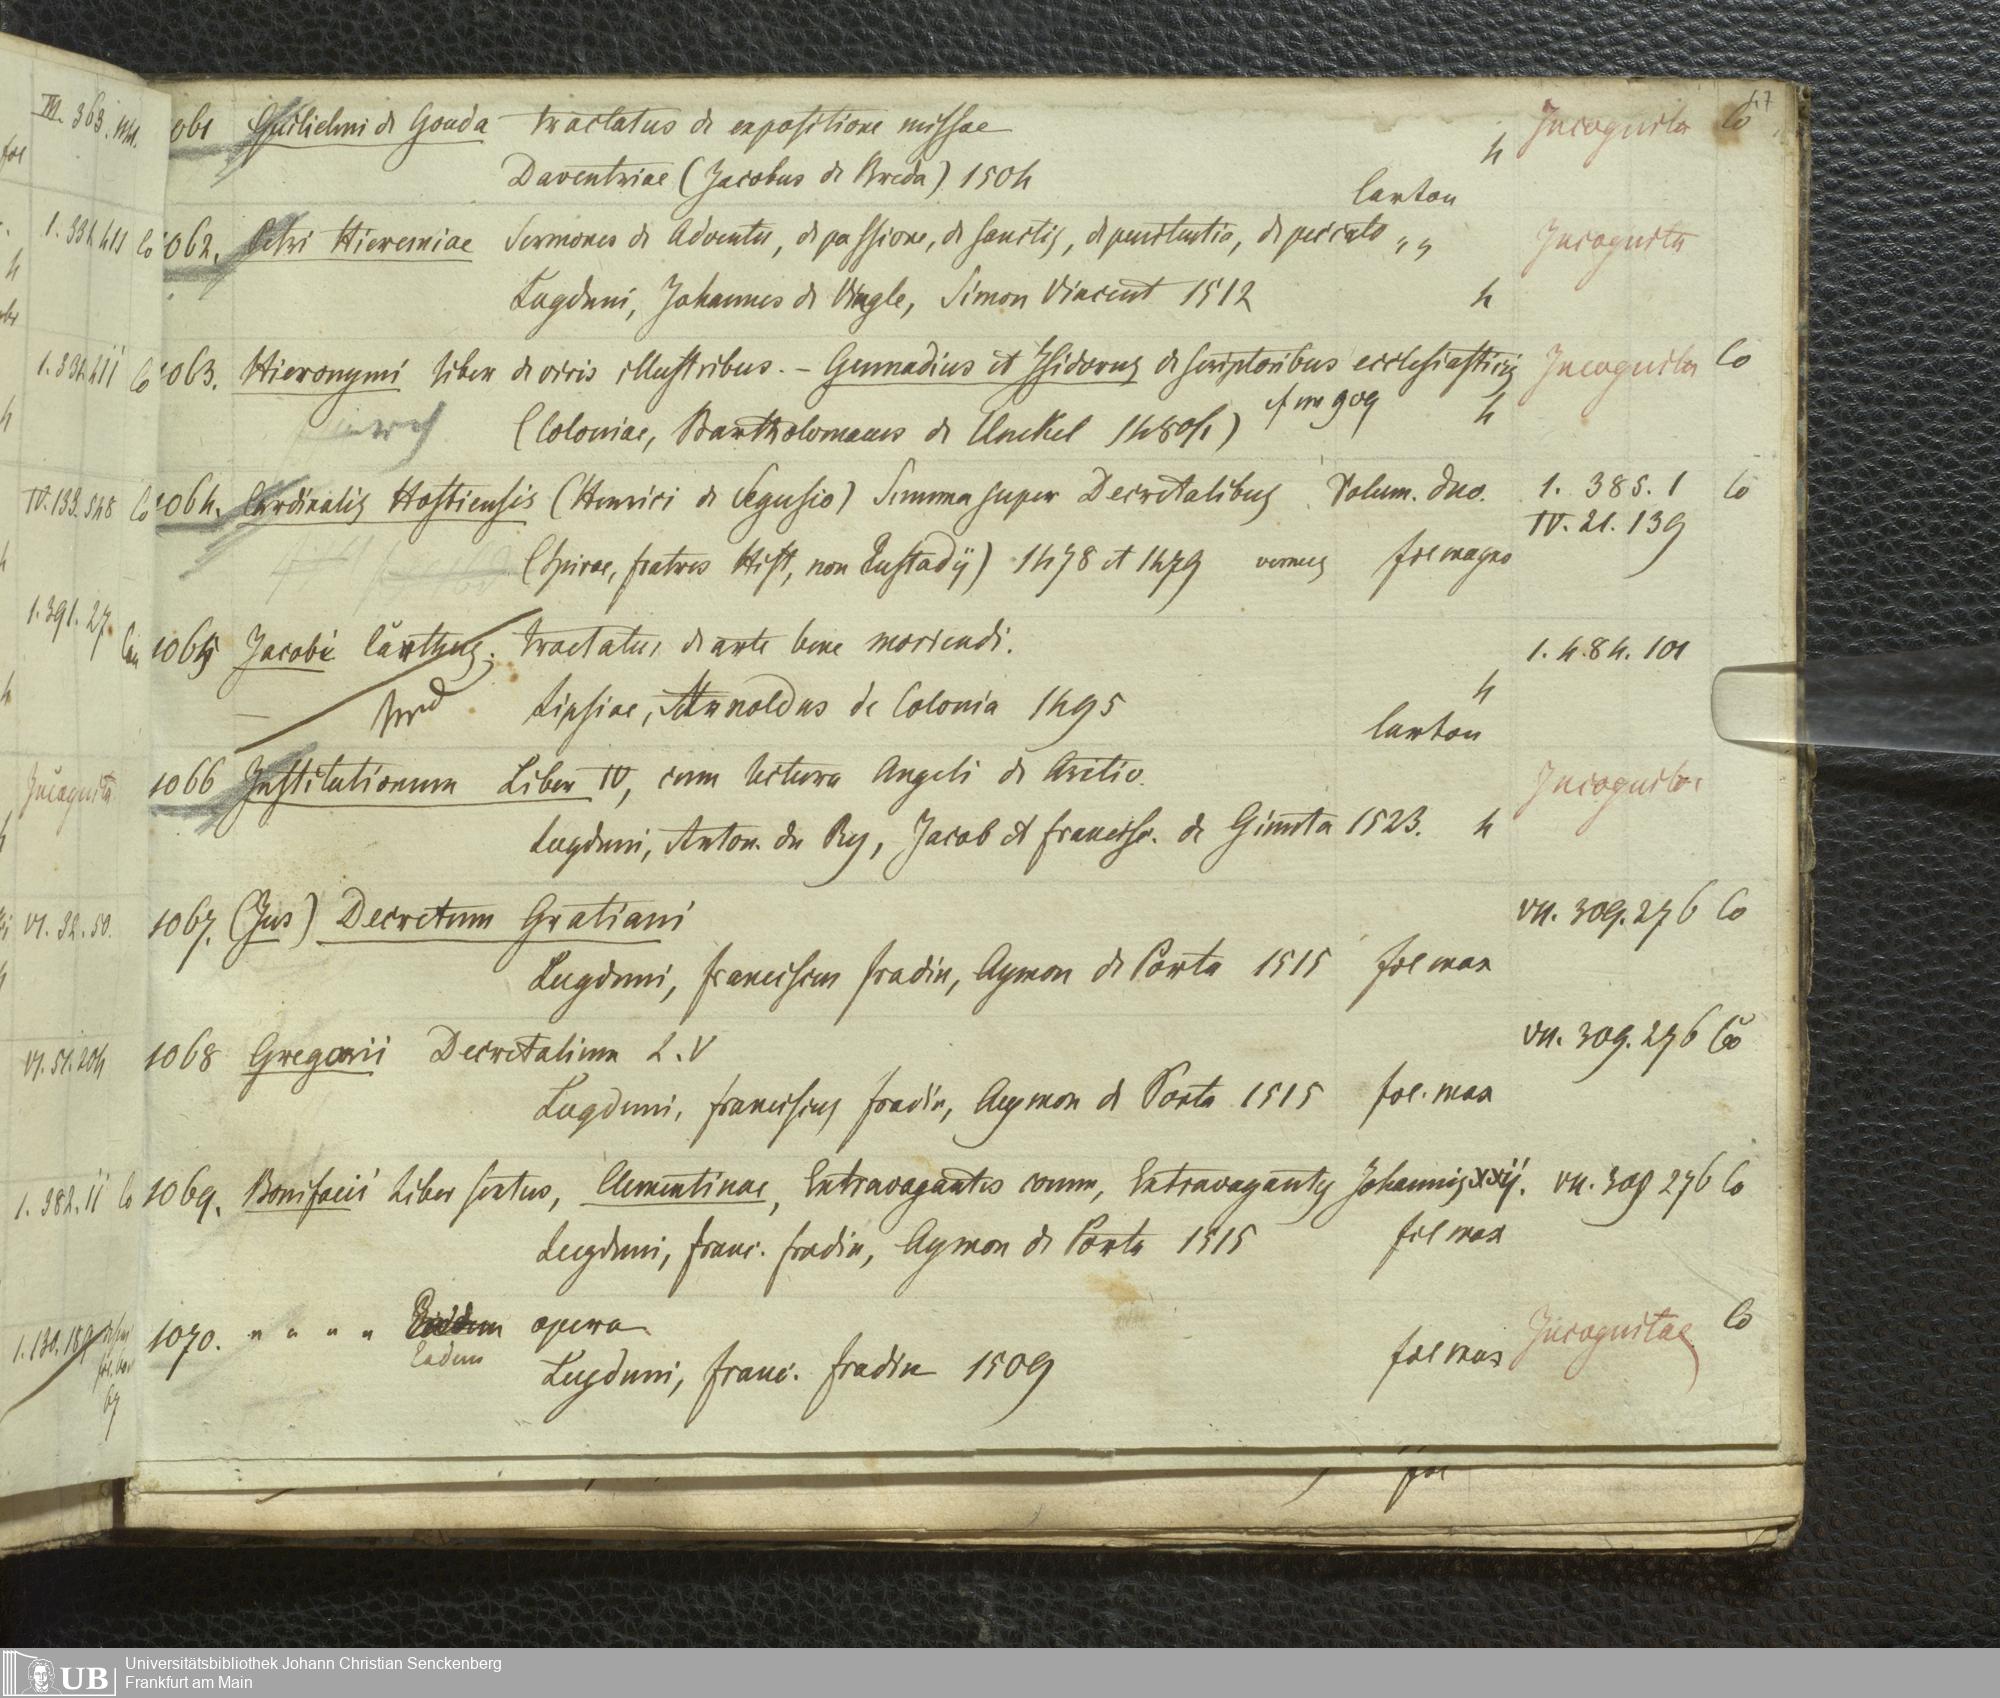 47
1061 Guilielmi de Gouda tractatus de expositione missae Incognita Co
Daventriae (Jacobus de Breda) 1504 4
carton
1062. Petri Hieremiae Sermones de Adventu, de passione, de sanctis, de penitentia, de peccato „ „ Incognita
Lugduni, Johannes de Vingle, Simon Vincent 1512 4
1063. Hieronymi Liber de viris illustribus. – Gennadius et Isidorus de scriptoribus ecclesiasticis Incognita Co
(Coloniae, Bartholomaeus de Unckel 1480/1) cf nro 909 4
1064. Cardinalis Hostiensis (Henrici de Segusio) Summa super Decretalibus Volum. duo. 1. 385. 1 Co
IV. 21. 139
(Spirae, fratres Hist, non Eustadij) 1478 et 1479 fol magno
1065 Jacobi Carthus. Tractatus de arte bene moriendi. 1. 484. 101
Lipsiae, Arnoldus de Colonia 1495 4
carton
1066 Institutionum Liber IV, cum lectura Angeli de Aretio. Incognita
Lugduni, Anton. du Ry, Jacob et Francisc. de Giunta 1523. 4
1067. (Jus) Decretum Gratiani VII. 309. 276 Co
Lugduni, Franciscus Fradin, Aymon de Porta 1515 fol max
1068 Gregorii Decretalium L. V VII. 309. 276 Co
Lugduni, Franciscus Fradin, Aymon de Porta 1515 fol. max
1069. Bonifacii Liber sextus, Clementinae, Extravagantes comm, Extravagantes Johannis xxij. VII. 309 276 Co
Lugduni, Franc. Fradin, Aymon de Porta 1515 fol max
1070. „ „ „ „ Eadem opera Incognitae Co
Lugduni, Franc. Fradin 1509 fol max
fol
III. 363.
fol
1. 334 411 Co
4
1. 334. 411 Co
IV. 133. 548 Co
1. 391. 27.
Incognita
VI. 32. 50.
VI. 51. 204
1. 382. 11 Co
1. 130. 189
UB
Universitätsbibliothek Johann Christian Senckenberg
Frankfurt am Main